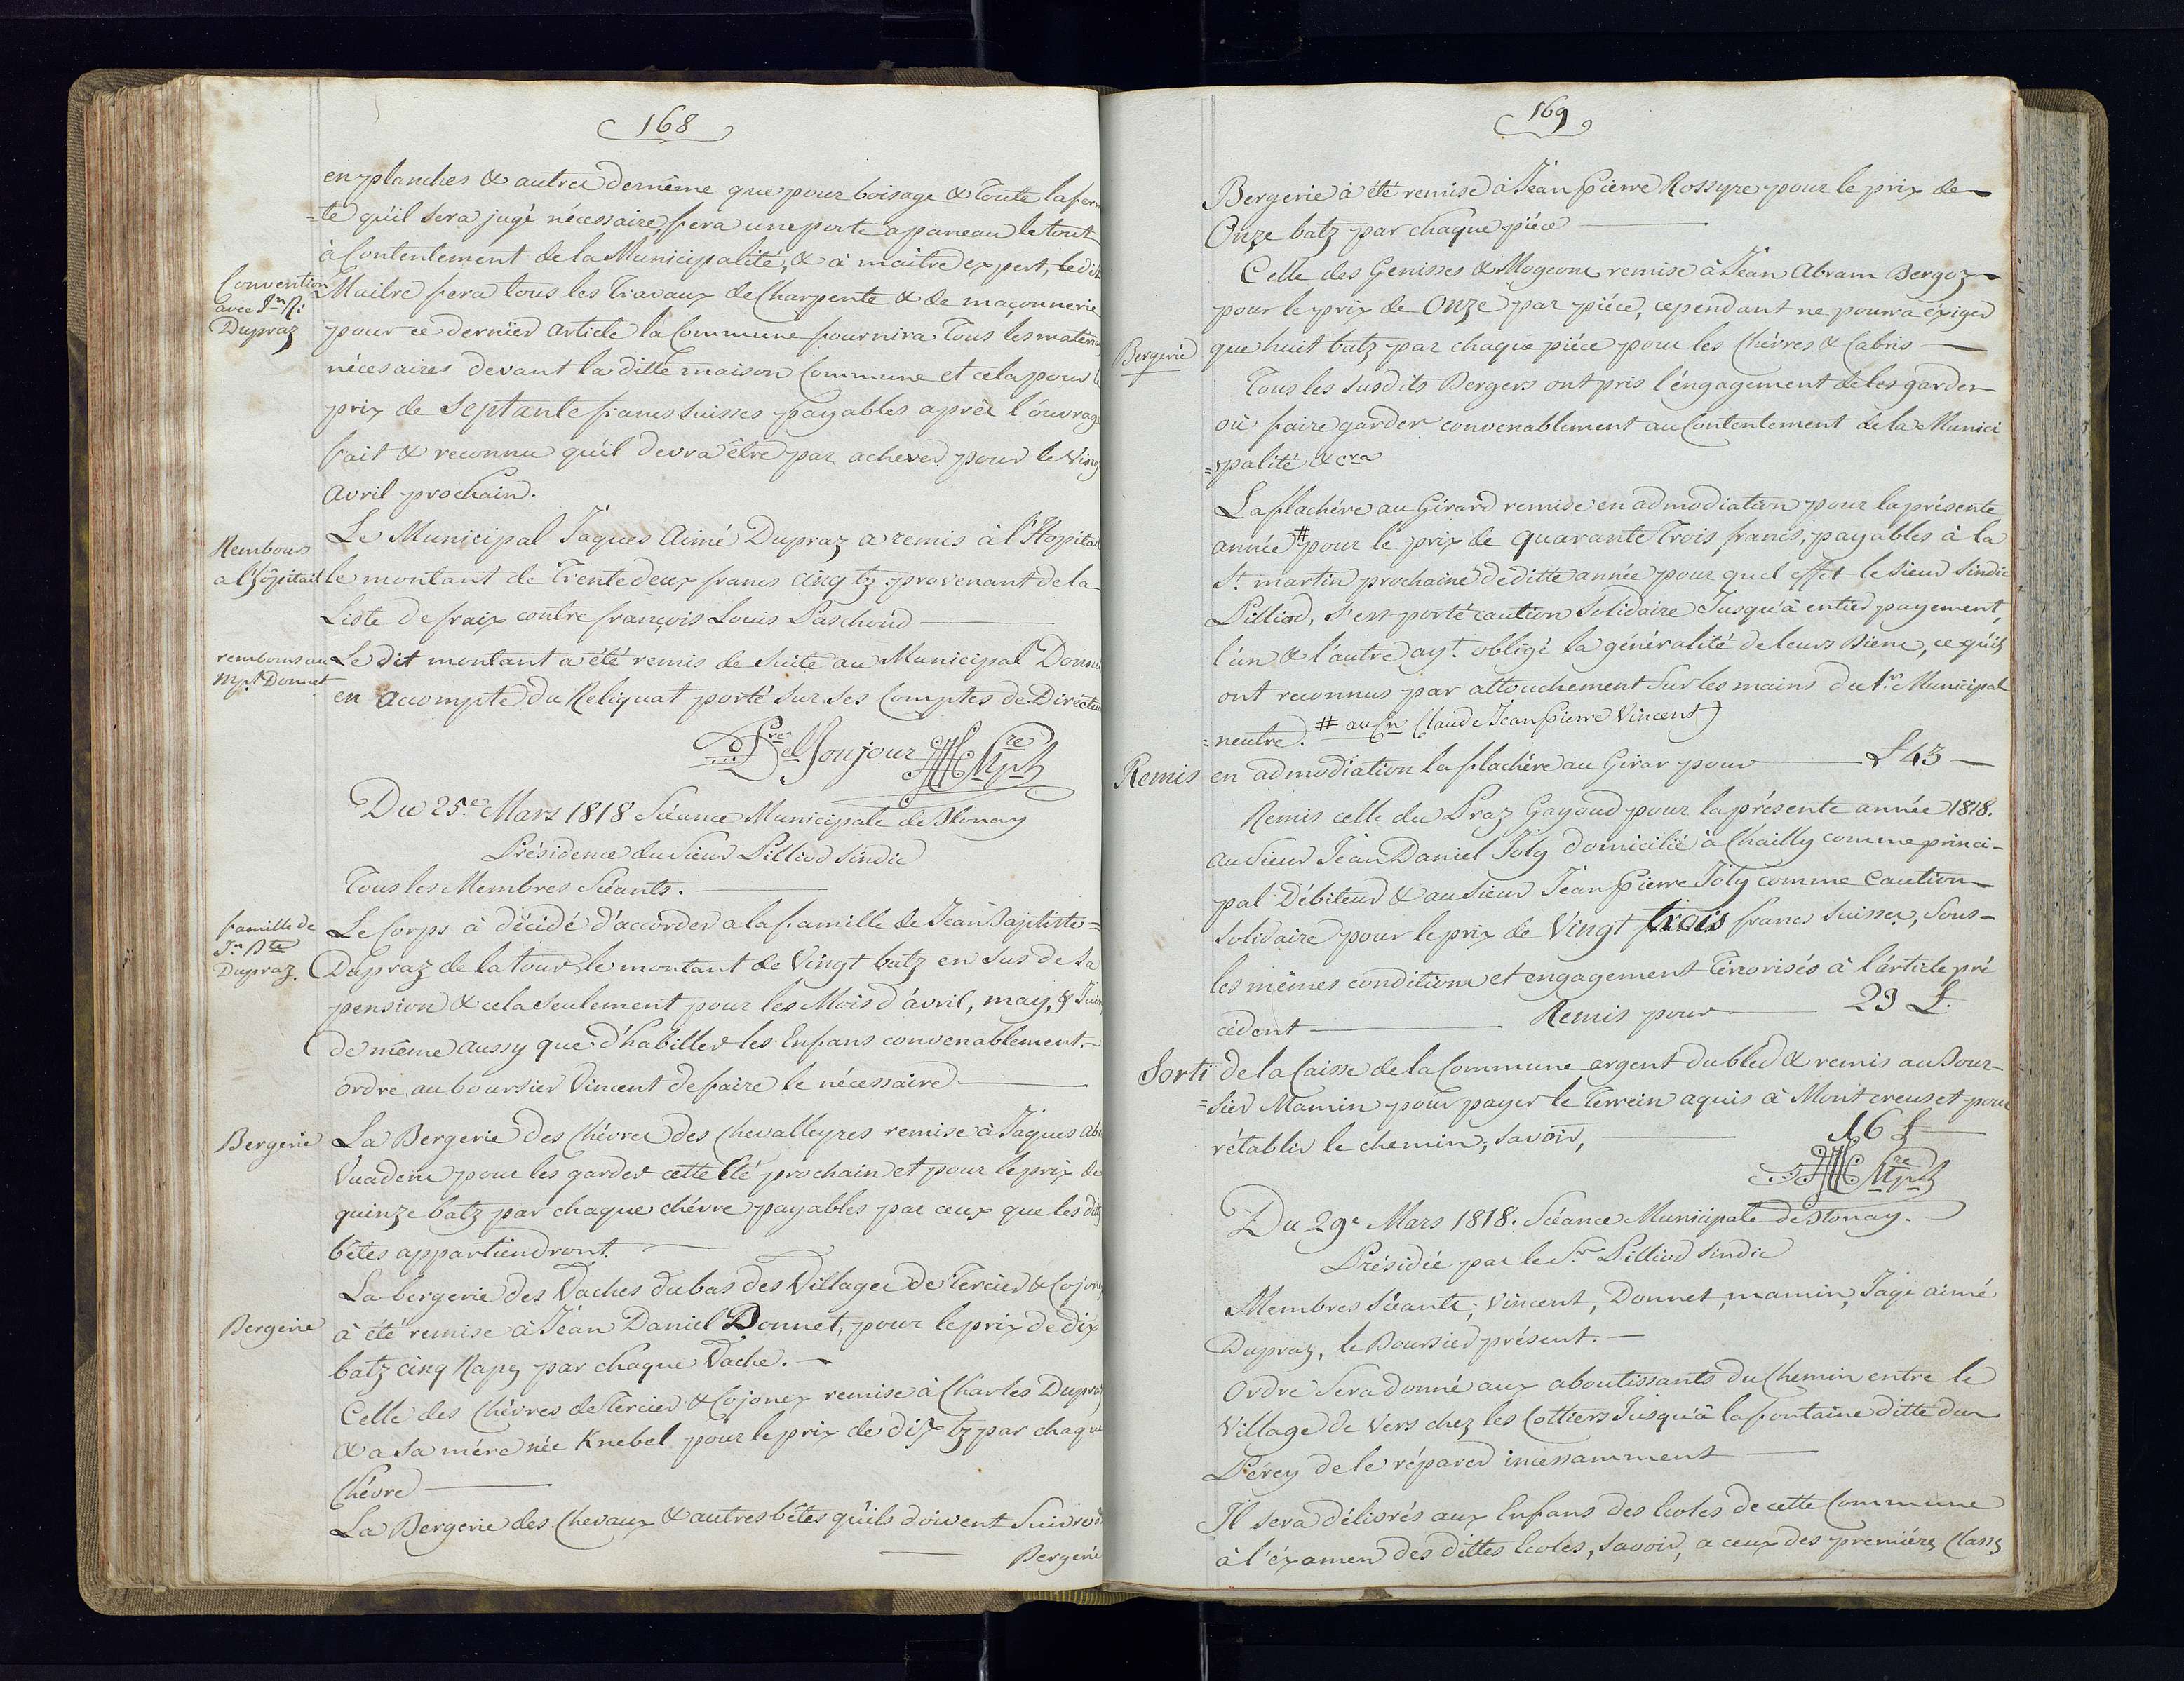 168
en planches & autres de même que pour boisage & toute la fer
=te qu'il sera jugé nécessaire, fera une porte a paneau le tout
à Contentement de la Municipalité, & à maitre expert, le dit
Convention
avec Jn
Dupraz
Maitre fera tous les Travaux de Charpente & de maçonnerie
pour ce dernier article la Commune fournira Tous les materiaux
nécesaires devant la ditte maison Commune et cela pour le
prix de Septante francs suisses payables après l'ouvrage
fait & reconnu qu'il devra être par achever pour le Ving
Avril prochain.
Rembours
a l'hôpitail
Le Municipal Jaques Aimé Dupraz a remis à l'Hopitail
le montant de Trente deux francs cinq bz provenant de la
Liste de fraix contre françois Louis Paschoud
rembours au
Mpl Donnet
Le dit montant a été remis de suite au Municipal Donnet
en Accompte du Reliquat porté sur ses Comptes de Directeur
Bonjour
Du 25.e Mars 1818 Séance Municipale de Blonay
Présidence du Sieur Pilliod Sindic
Tous les Membres Séants.
famille de
Jn Bte
Dupraz.
Le Corps à décidé d'accorder a la famille de Jean Baptiste=
Dupraz de la tour le montant de Vingt batz en sus de sa
pension & cela seulement pour les Mois d'avril, may, & Juin
de même aussy que d'habiller les Enfans convenablement.
ordre au boursier Vincent de faire le nécessaire
Bergerie
La Bergerie des Chévres des Chevalleyres remise à Jaques Ab
Vuadens pour les garder cette Eté prochain et pour le prix de
quinze batz par chaque chévre payables par ceux que les dittes
bêtes appartiendront.
Bergerie
La bergerie des Vaches du bas des Villages de Tercier & Cojonnex
à été remise à Jéan Daniel Donnet, pour le prix de dix
batz cinq Rapz par chaque Vache.
Celle des Chévres de Tercier & Cojonex remise à Charles Dupraz
& a sa mére née Knebel pour le prix de dix bz par chaque
Chévre
La Bergerie des Chevaux & autres bêtes qu'ils doivent Suivre d
Bergerie
169
Bergerie à été remise à Jean Pierre Rossyre pour le prix de
Onze batz par chaque piéce
Celle des Genisses & Mogeons remise à Jean Abram Bergoz
pour le prix de Onze par piéce, cependant ne pourra éxiger
Bergerie
que huit batz par chaque piéce pour les Chévres & Cabris
Tous les susdits Bergers ont pris l'éngagement de les garder
où faire garder convenablement au Contentement de la Munici
=palité &cra
La flachére au Girard remise en admodiation pour la présente
année # pour le prix de quarante Trois francs, payables à la
St. martin prochaine de ditte année pour quel effet le sieur Sindic
Pilliod, s'est porté caution Solidaire Jusqu'à entier payement,
l'un & l'autre ayt. obligé la généralité de leurs Biens, ce qu'ils
ont reconnus par attouchement Sur les mains du 1.r Municipal
=neutre. # au Cn Claude Jean Pierre Vincent)
Remis en admodiation la flachére au Girar pour £ 43
Remis celle du Praz Gayoud pour la présente année 1818.
au Sieur Jean Daniel Joly domicilié à Chailly comme princi-
pal Débiteur & au Sieur Jean Pierre Joly comme Caution
Solidaire pour le prix de Vingt trois francs Suisses, Sous-
les mêmes conditions et engagement Ténorisés à l'árticle pré
cédent Remis pour 23 £.
Sorti de la Caisse de la Commune argent du bled & remis au Bour-
=sier Mamin pour payer le Terrein aquis à Mont creuset pour
rétablir le chemin, Savoir, 16 £
Du 29e Mars 1818. Séance Municipale de Blonay.
Présidée par le Sr Pilliod Sindic
Membres Séants; Vincent, Donnet, mamin, Jaqs aimé
Dupraz, le Boursier présent.
Ordre Sera donné aux aboutissants du Chemin entre le
Village de Vers chez les Cottiers Jusqu'à la fontaine ditte du
Pérey de le réparer incessamment
Il sera délivrés aux Enfans des Ecoles de cette Commune
à l'éxamen des dittes Ecoles, savoir, a ceux des premiéres Classs